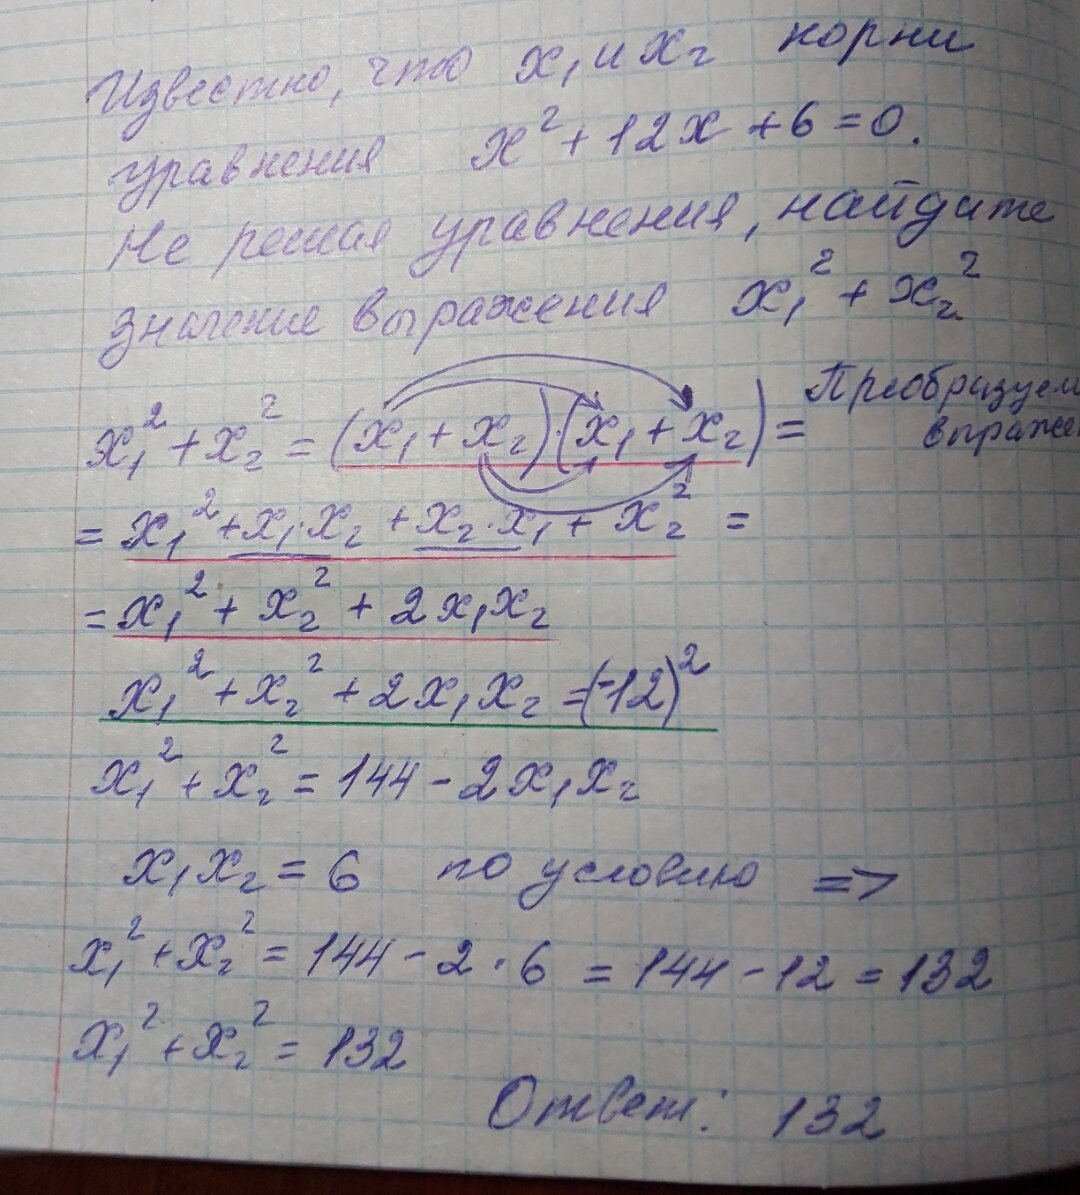 Известно, что x₁ и x₂ корни
уравнения x² + 12x + 6 = 0.
Не решая уравнения, найдите
значение выражения x₁² + x₂²
x₁² + x₂² = (x₁ + x₂)·(x₁ + x₂) =
Преобразуем
выраже
= x₁² + x₁·x₂ + x₂·x₁ + x₂² =
= x₁² + x₂² + 2x₁x₂
x₁² + x₂² + 2x₁x₂ = (-12)²
x₁² + x₂² = 144 - 2x₁x₂
x₁x₂ = 6 по условию =>
x₁² + x₂² = 144 - 2·6 = 144 - 12 = 132
x₁² + x₂² = 132
Ответ: 132